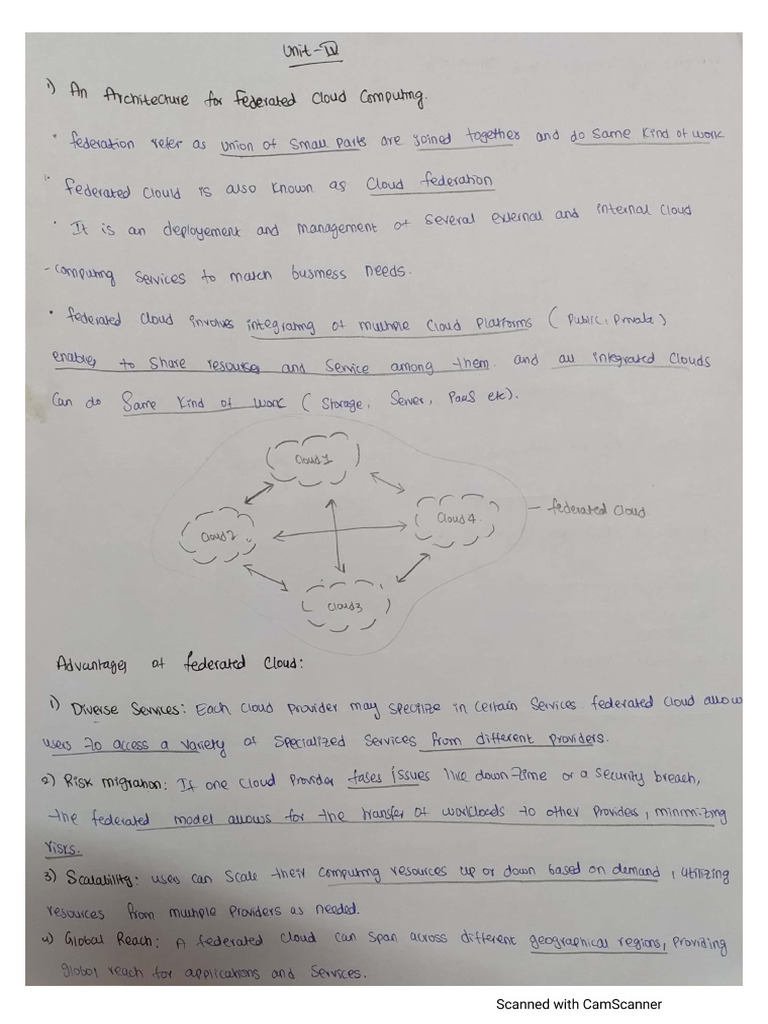 Unit-IV
1) An Architecture for Federated Cloud Computing.
• federation refer as union of small parts are joined together and do same kind of work
• federated clould is also known as Cloud federation
• It is an deployement and management of several external and internal cloud
- computing services to match business needs.
• federated cloud involves integrating of multiple cloud platforms (Public, Private)
enables to share resources and service among them. and all integrated clouds
can do same kind of work (storage, Server, PaaS etc).
cloud 1
cloud 2
cloud 4
cloud 3
- federated cloud
Advantages of federated cloud:
1) Diverse Services: Each cloud provider may specilize in certain services. federated cloud allow
users to access a variety of specialized services from different providers.
2) Risk migration: If one cloud provider fases issues like down-time or a security breach,
the federated model allows for the transfer of workloads to other provides, minimizing
risks.
3) Scalability: uses can scale their computing resources up or down based on demand, utilizing
resources from multiple providers as needed.
4) Global Reach: A federated cloud can span across different geographical regions, providing
global reach for applications and services.
Scanned with CamScanner